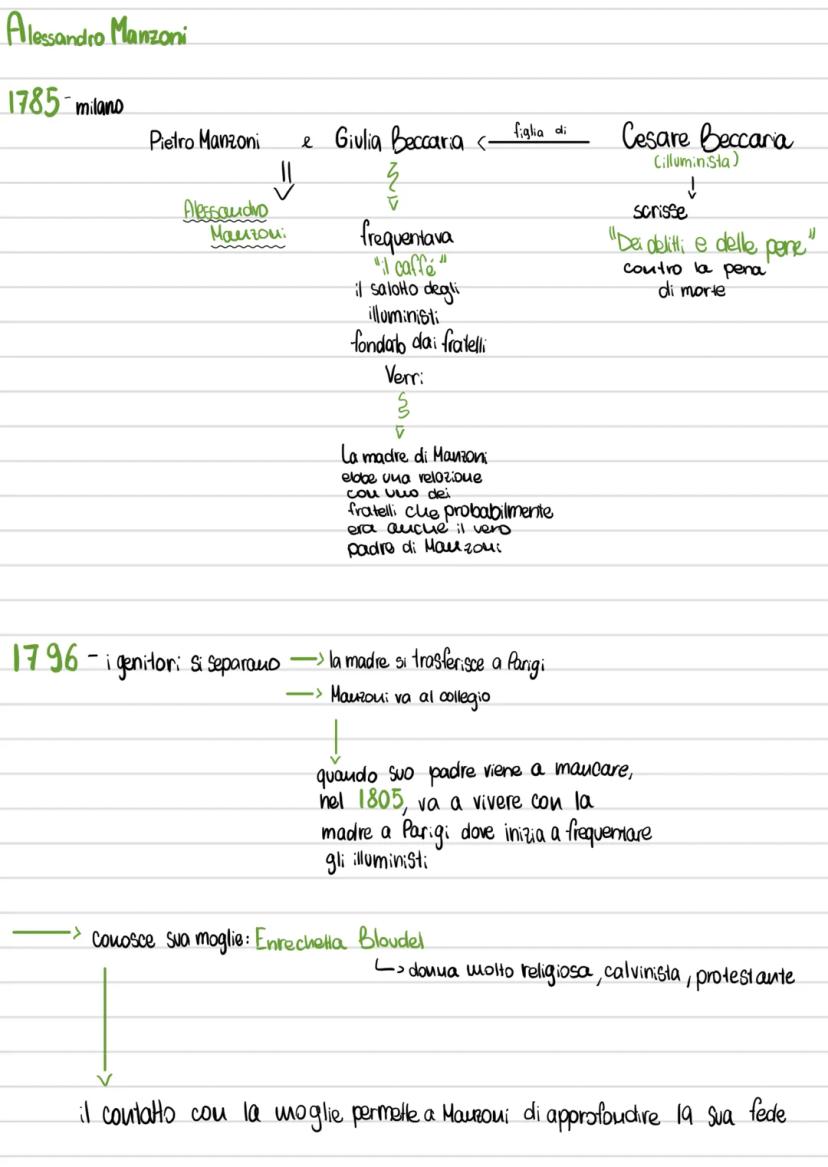 Alessandro Manzoni
1785 - milano
Pietro Manzoni e Giulia Beccaria figlia di Cesare Beccaria
(illuminista)
Alessandro
Manzoni
frequentava
"il caffé"
il salotto degli
illuministi
fondato dai fratelli
Verri
scrisse
"Dei delitti e delle pene"
contro la pena
di morte
La madre di Manzoni
ebbe una relozione
con uno dei
fratelli che probabilmente
era anche il vero
padre di Manzoni
1796 - i genitori si separano la madre si trasferisce a Parigi
Manzoni va al collegio
quando suo padre viene a mancare,
nel 1805, va a vivere con la
madre a Parigi dove inizia a frequentare
gli illuministi
conosce sua moglie: Enrechetta Bloudel
donna molto religiosa, calvinista, protestante
il contatto con la moglie permette a Manzoni di approfondire la sua fede